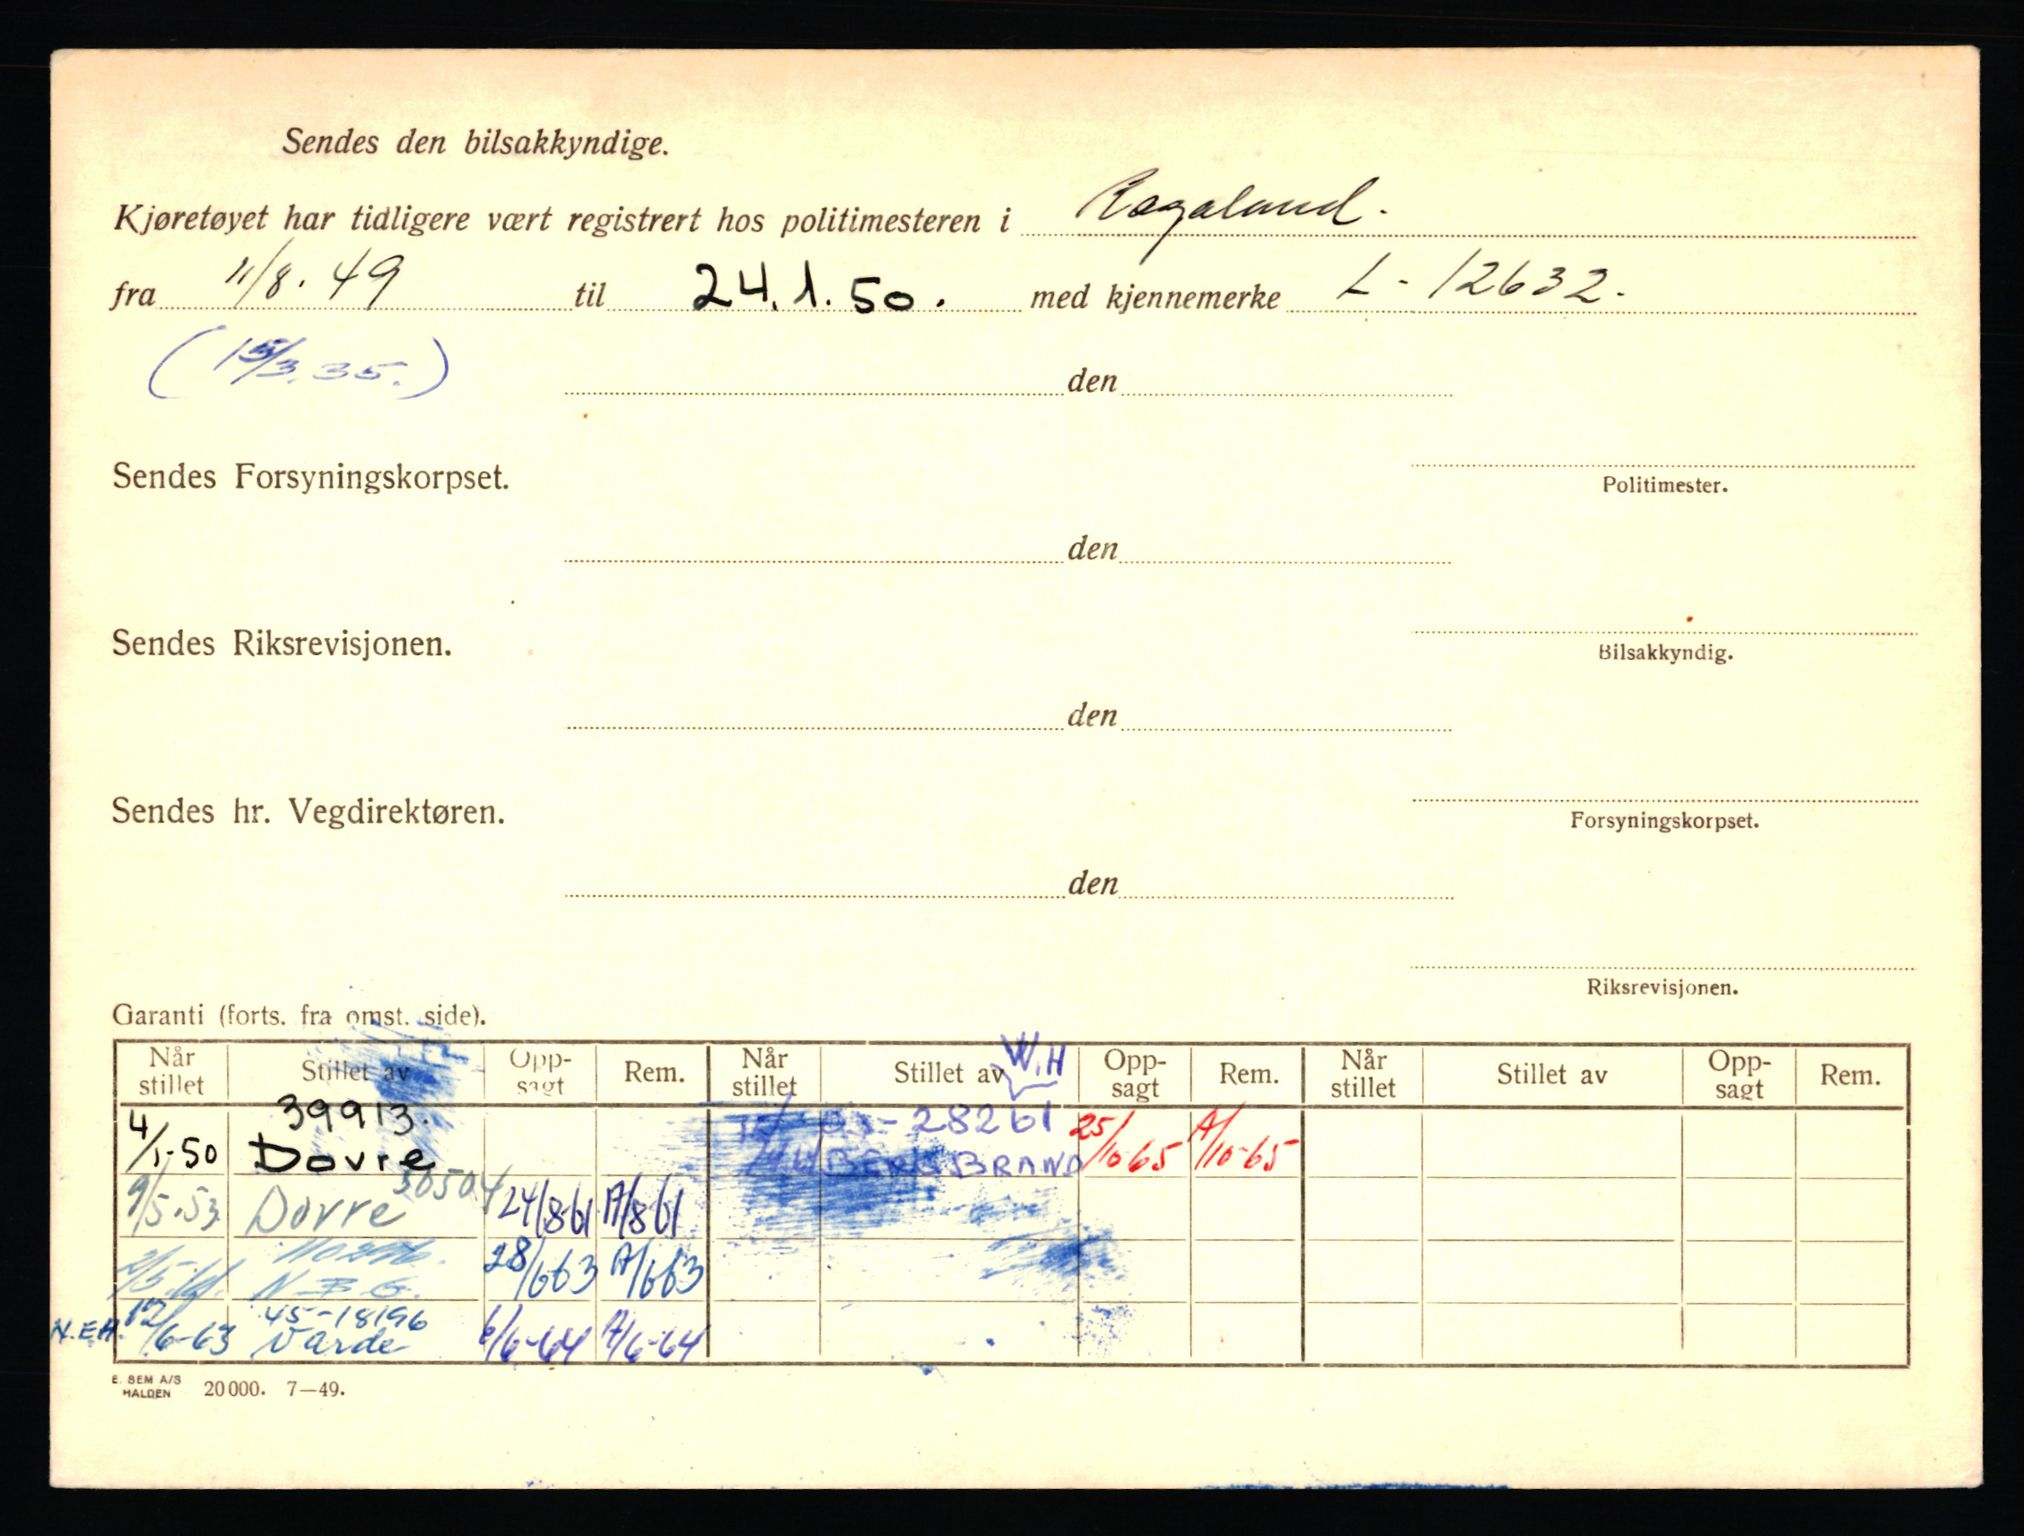 Sendes den bilsakkyndige.
Kjøretøyet har tidligere vært registrert hos politimesteren i Rogaland.
fra 11/8. 49 til 24.1.50. med kjennemerke L-12632.
(15/3.35.)
den
Sendes Forsyningskorpset.
Politimester.
den
Sendes Riksrevisjonen.
Bilsakkyndig.
den
Sendes hr. Vegdirektøren.
Forsyningskorpset.
den
Riksrevisjonen.
Garanti (forts. fra omst. side).
W.H
Når stillet Stillet av Opp-sagt Rem. Når stillet Stillet av Opp-sagt Rem. Når stillet Stillet av Opp-sagt Rem.
39913. 28261
4/1-50 Dovre BRAND 25/10-65 A/10-65
30504
9/5.53 Dovre 24/8-61 A/8 61
28/6 63 A/6 63
45-18196
N.E.H. 12/6-63 Varde 6/6-64 A/6-64
E. SEM A/S
HALDEN 20000. 7—49.